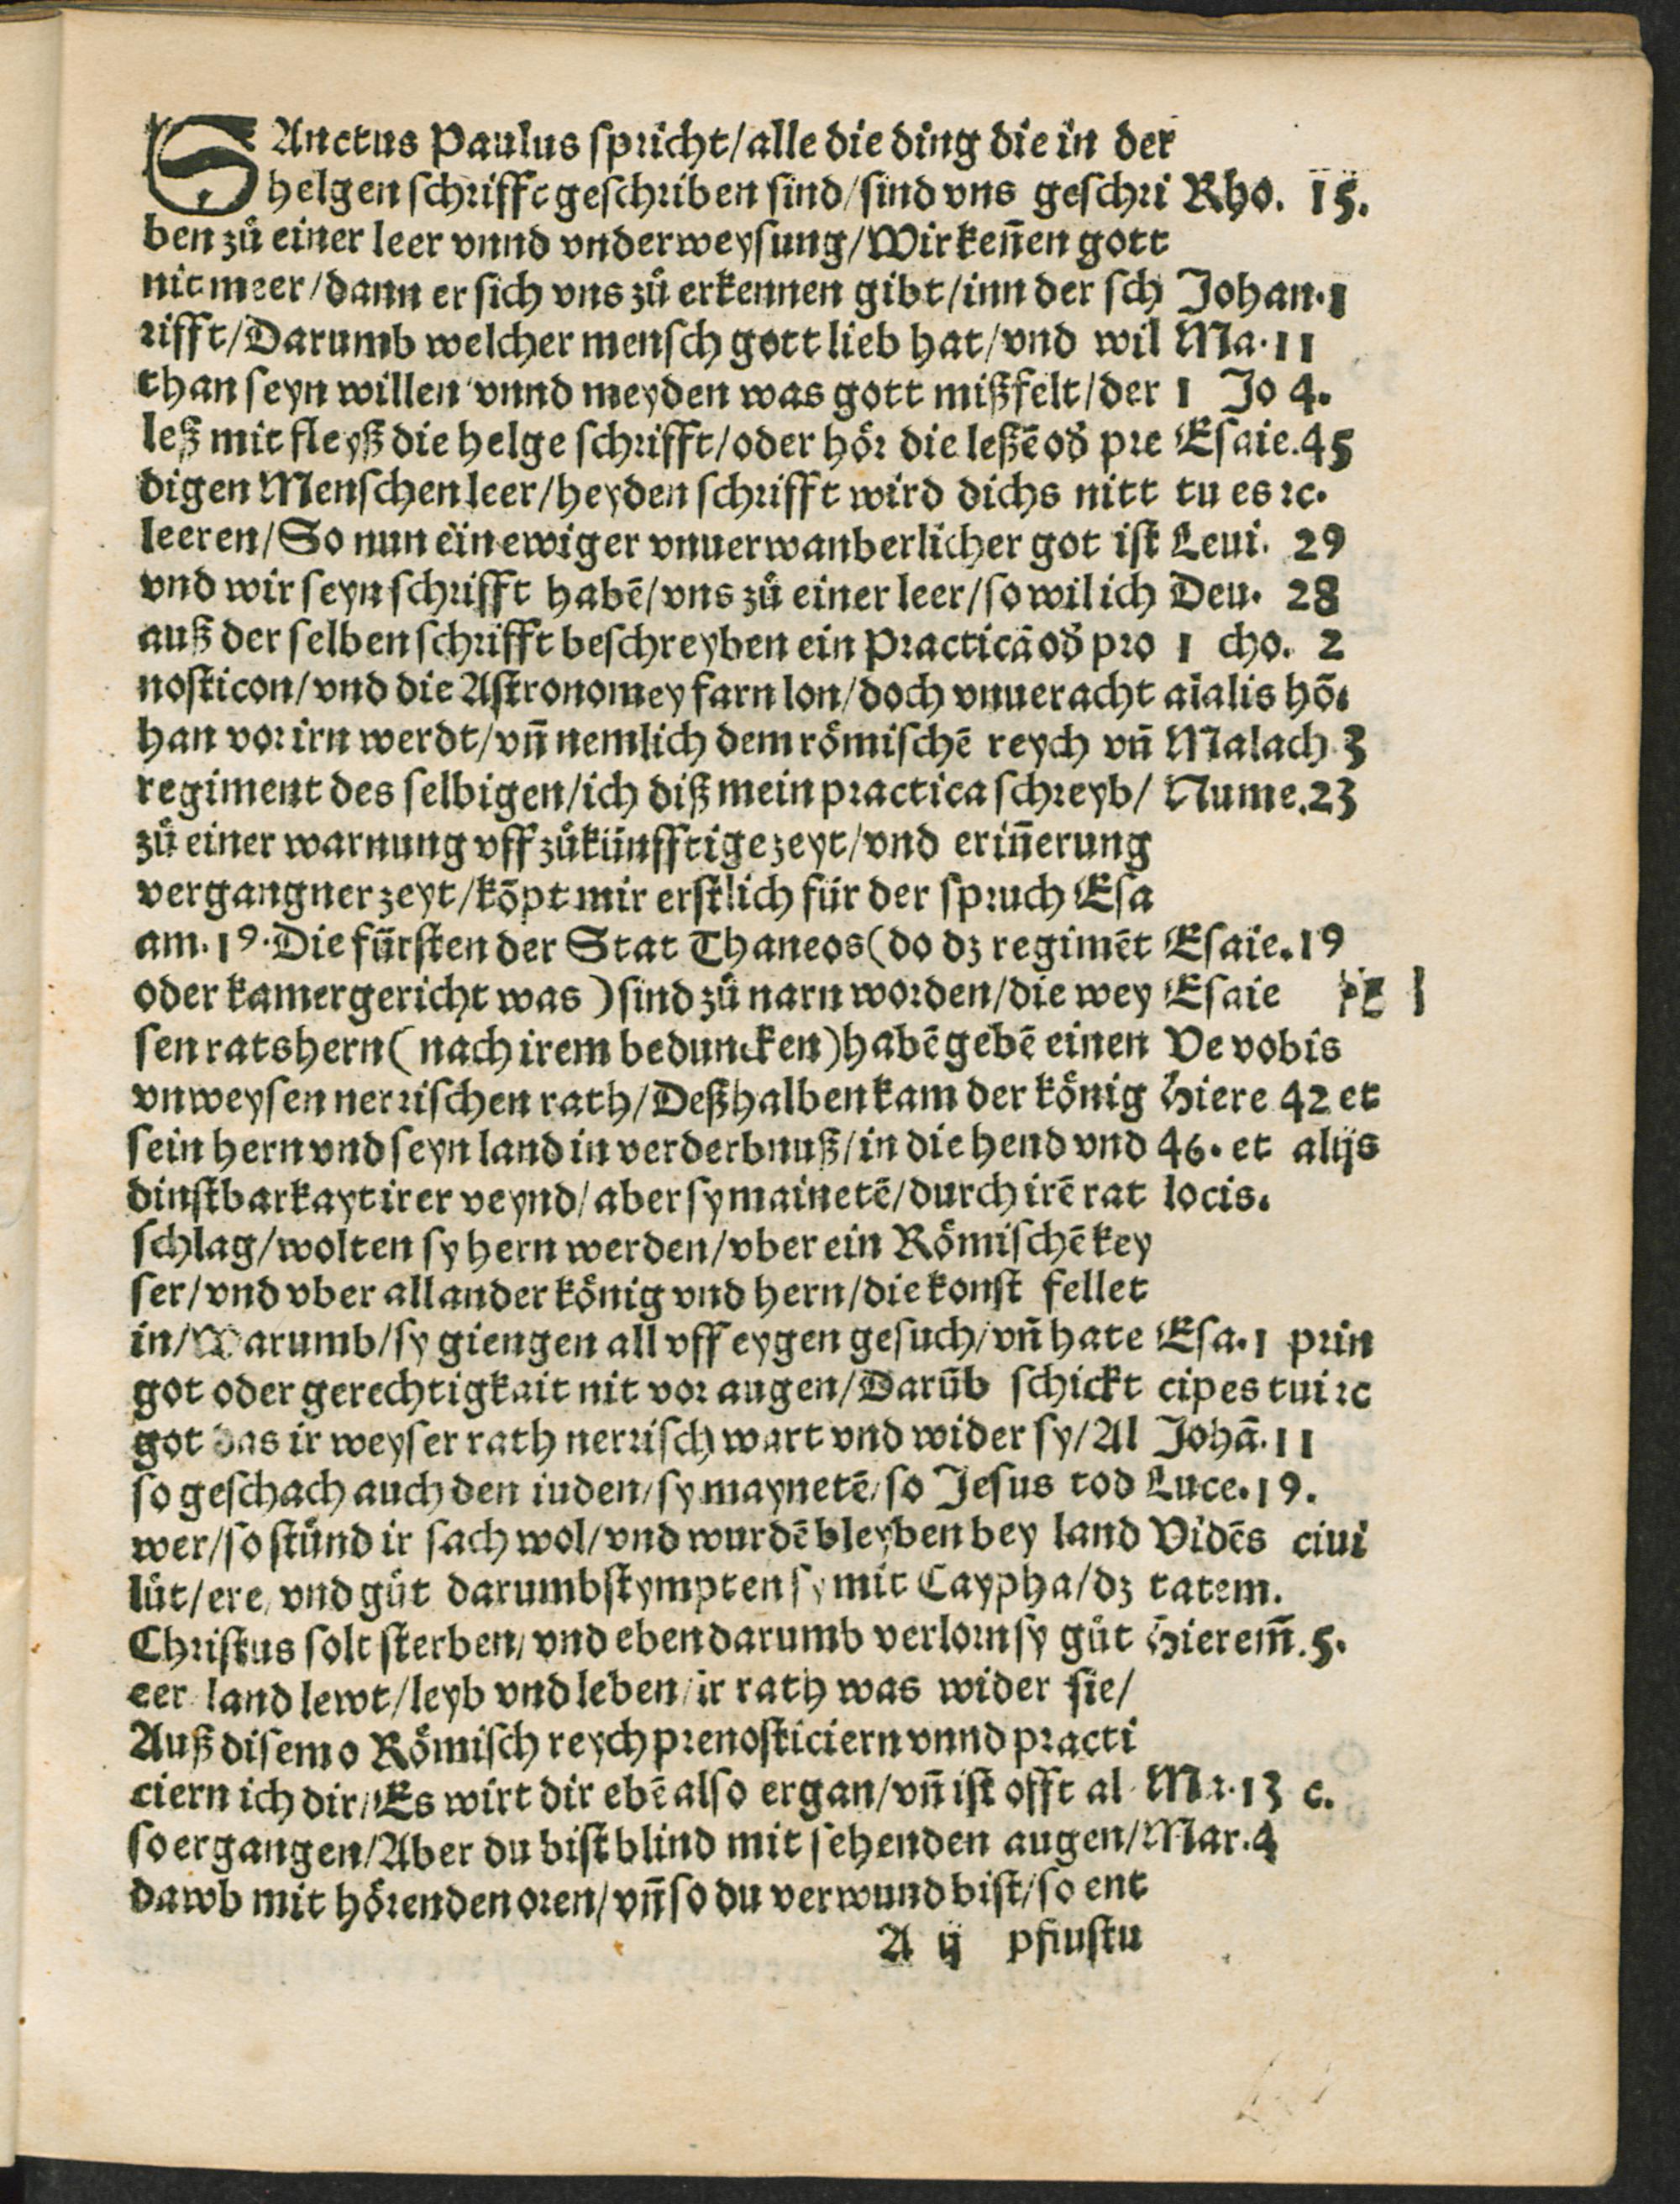 SAnctus Paulus spricht/alle die ding die in der
helgen schrifft geschriben sind/sind vns geschri Rho. 15.
ben zů einer leer vnnd vnderweysung/Wir keñen gott
nit meer/dann er sich vns zů erkennen gibt/inn der sch Johan.1
rifft/Darumb welcher mensch gott lieb hat/vnd wil Ma.11
than seyn willen vnnd meyden was gott mißfelt/der 1 Jo 4.
leß mit fleyß die helge schrifft/oder hör die leßē od̄ pre Esaie.45
digen Menschen leer/heyden schrifft wird dichs nitt tu es ꝛc.
leeren/So nun ein ewiger vnuerwanberlicher got ist Leui. 29
vnd wir seyn schrifft habē/vns zů einer leer/so wil ich Deu. 28
auß der selben schrifft beschreyben ein Practicā od̄ pro 1 cho. 2
nosticon/vnd die Astronomey farn lon/doch vnueracht aīalis hō.
han vor irn werdt/vñ nemlich dem römischē reych vñ Malach 3
regiment des selbigen/ich diß mein practica schreyb/ Nume.23
zů einer warnung vff zůkünfftige zeyt/vnd eriñerung
vergangner zeyt/kōpt mir erstlich für der spruch Esa
am.19.Die fürsten der Stat Thaneos(do dz regimēt Esaie.19
oder kamergericht was)sind zů narn worden/die wey Esaie
sen ratshern(nach irem beduncken)habē gebē einen Ve vobis
vnweysen nerrischen rath/Deßhalben kam der könig Hiere 42 et
sein hern vnd seyn land in verderbnuß/in die hend vnd 46. et alijs
dinstbarkayt irer veynd/aber sy mainetē/durch irē rat locis.
schlag/wolten sy hern werden/vber ein Römischē key
ser/vnd vber all ander könig vnd hern/die konst fellet
in/Warumb/sy giengen all vff eygen gesuch/vñ hate Esa.1 prin
got oder gerechtigkait nit vor augen/Darūb schickt cipes tui ꝛc
got das ir weyser rath nerrisch wart vnd wider sy/Al Johā.11
so geschach auch den iuden/sy maynetē/so Jesus tod Luce.19.
wer/so stünd ir sach wol/vnd wurdē bleyben bey land Vidēs ciui
lüt/ere/vnd gůt darumb stympten sy mit Caypha/dz tatem.
Christus solt sterben/vnd eben darumb verlorn sy gůt Hierem̄.5.
eer land lewt/leyb vnd leben/ir rath was wider sie/
Auß disem o Römisch reych prenosticiern vnnd practi
ciern ich dir/Es wirt dir ebē also ergan/vñ ist offt al Ma.13 c.
so ergangen/Aber du bist blind mit sehenden augen/Mar.4
dawb mit hörenden oren/vñ so du verwund bist/so ent
A ij pfiustu